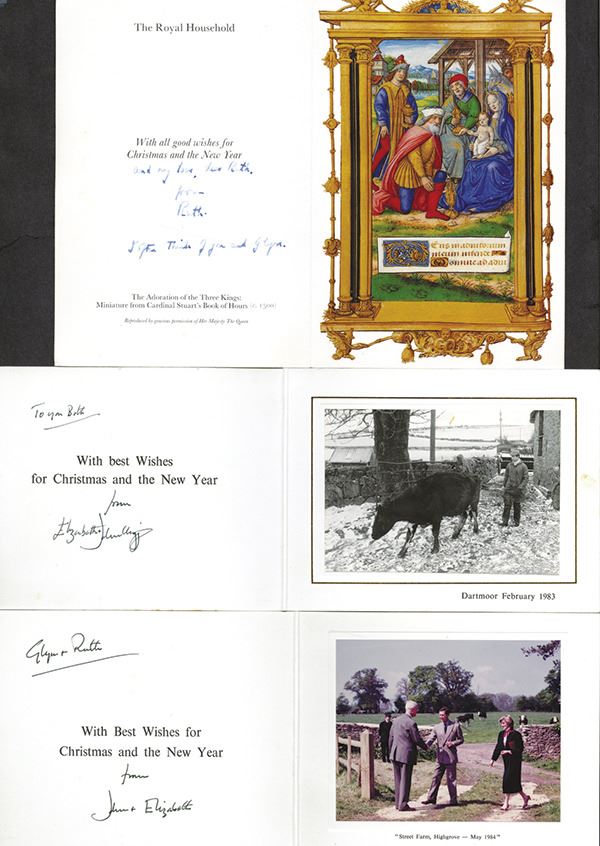 The Royal Household
With all good wishes for
Christmas and the New Year
and my love,
from
Ruth.
The Adoration of the Three Kings:
Miniature from Cardinal Stuart's Book of Hours (c. 1500)
Reproduced by gracious permission of Her Majesty The Queen
To you Both
With best Wishes
for Christmas and the New Year
from
Elizabeth
Dartmoor February 1983
Glyn + Ruth
With Best Wishes for
Christmas and the New Year
from
John + Elizabeth
"Street Farm, Highgrove — May 1984"